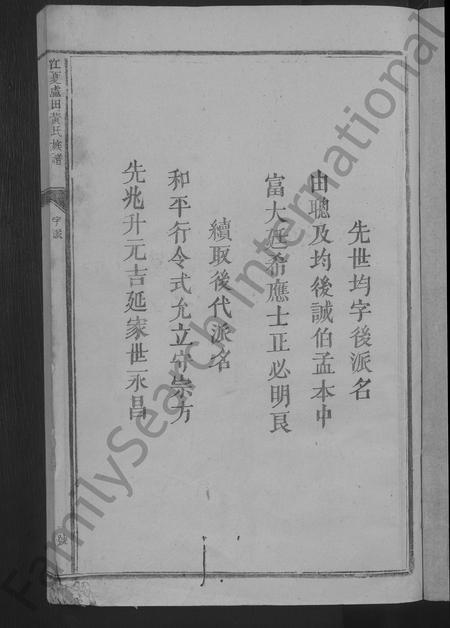 先世均字後派名
由聰及均後誠伯孟本中
富大廷希應士正必明良
續取後代派名
和平行令式允立守崇方
先兆升元吉延家世永昌
江夏盧田黃氏族譜
字派
FamilySearch International